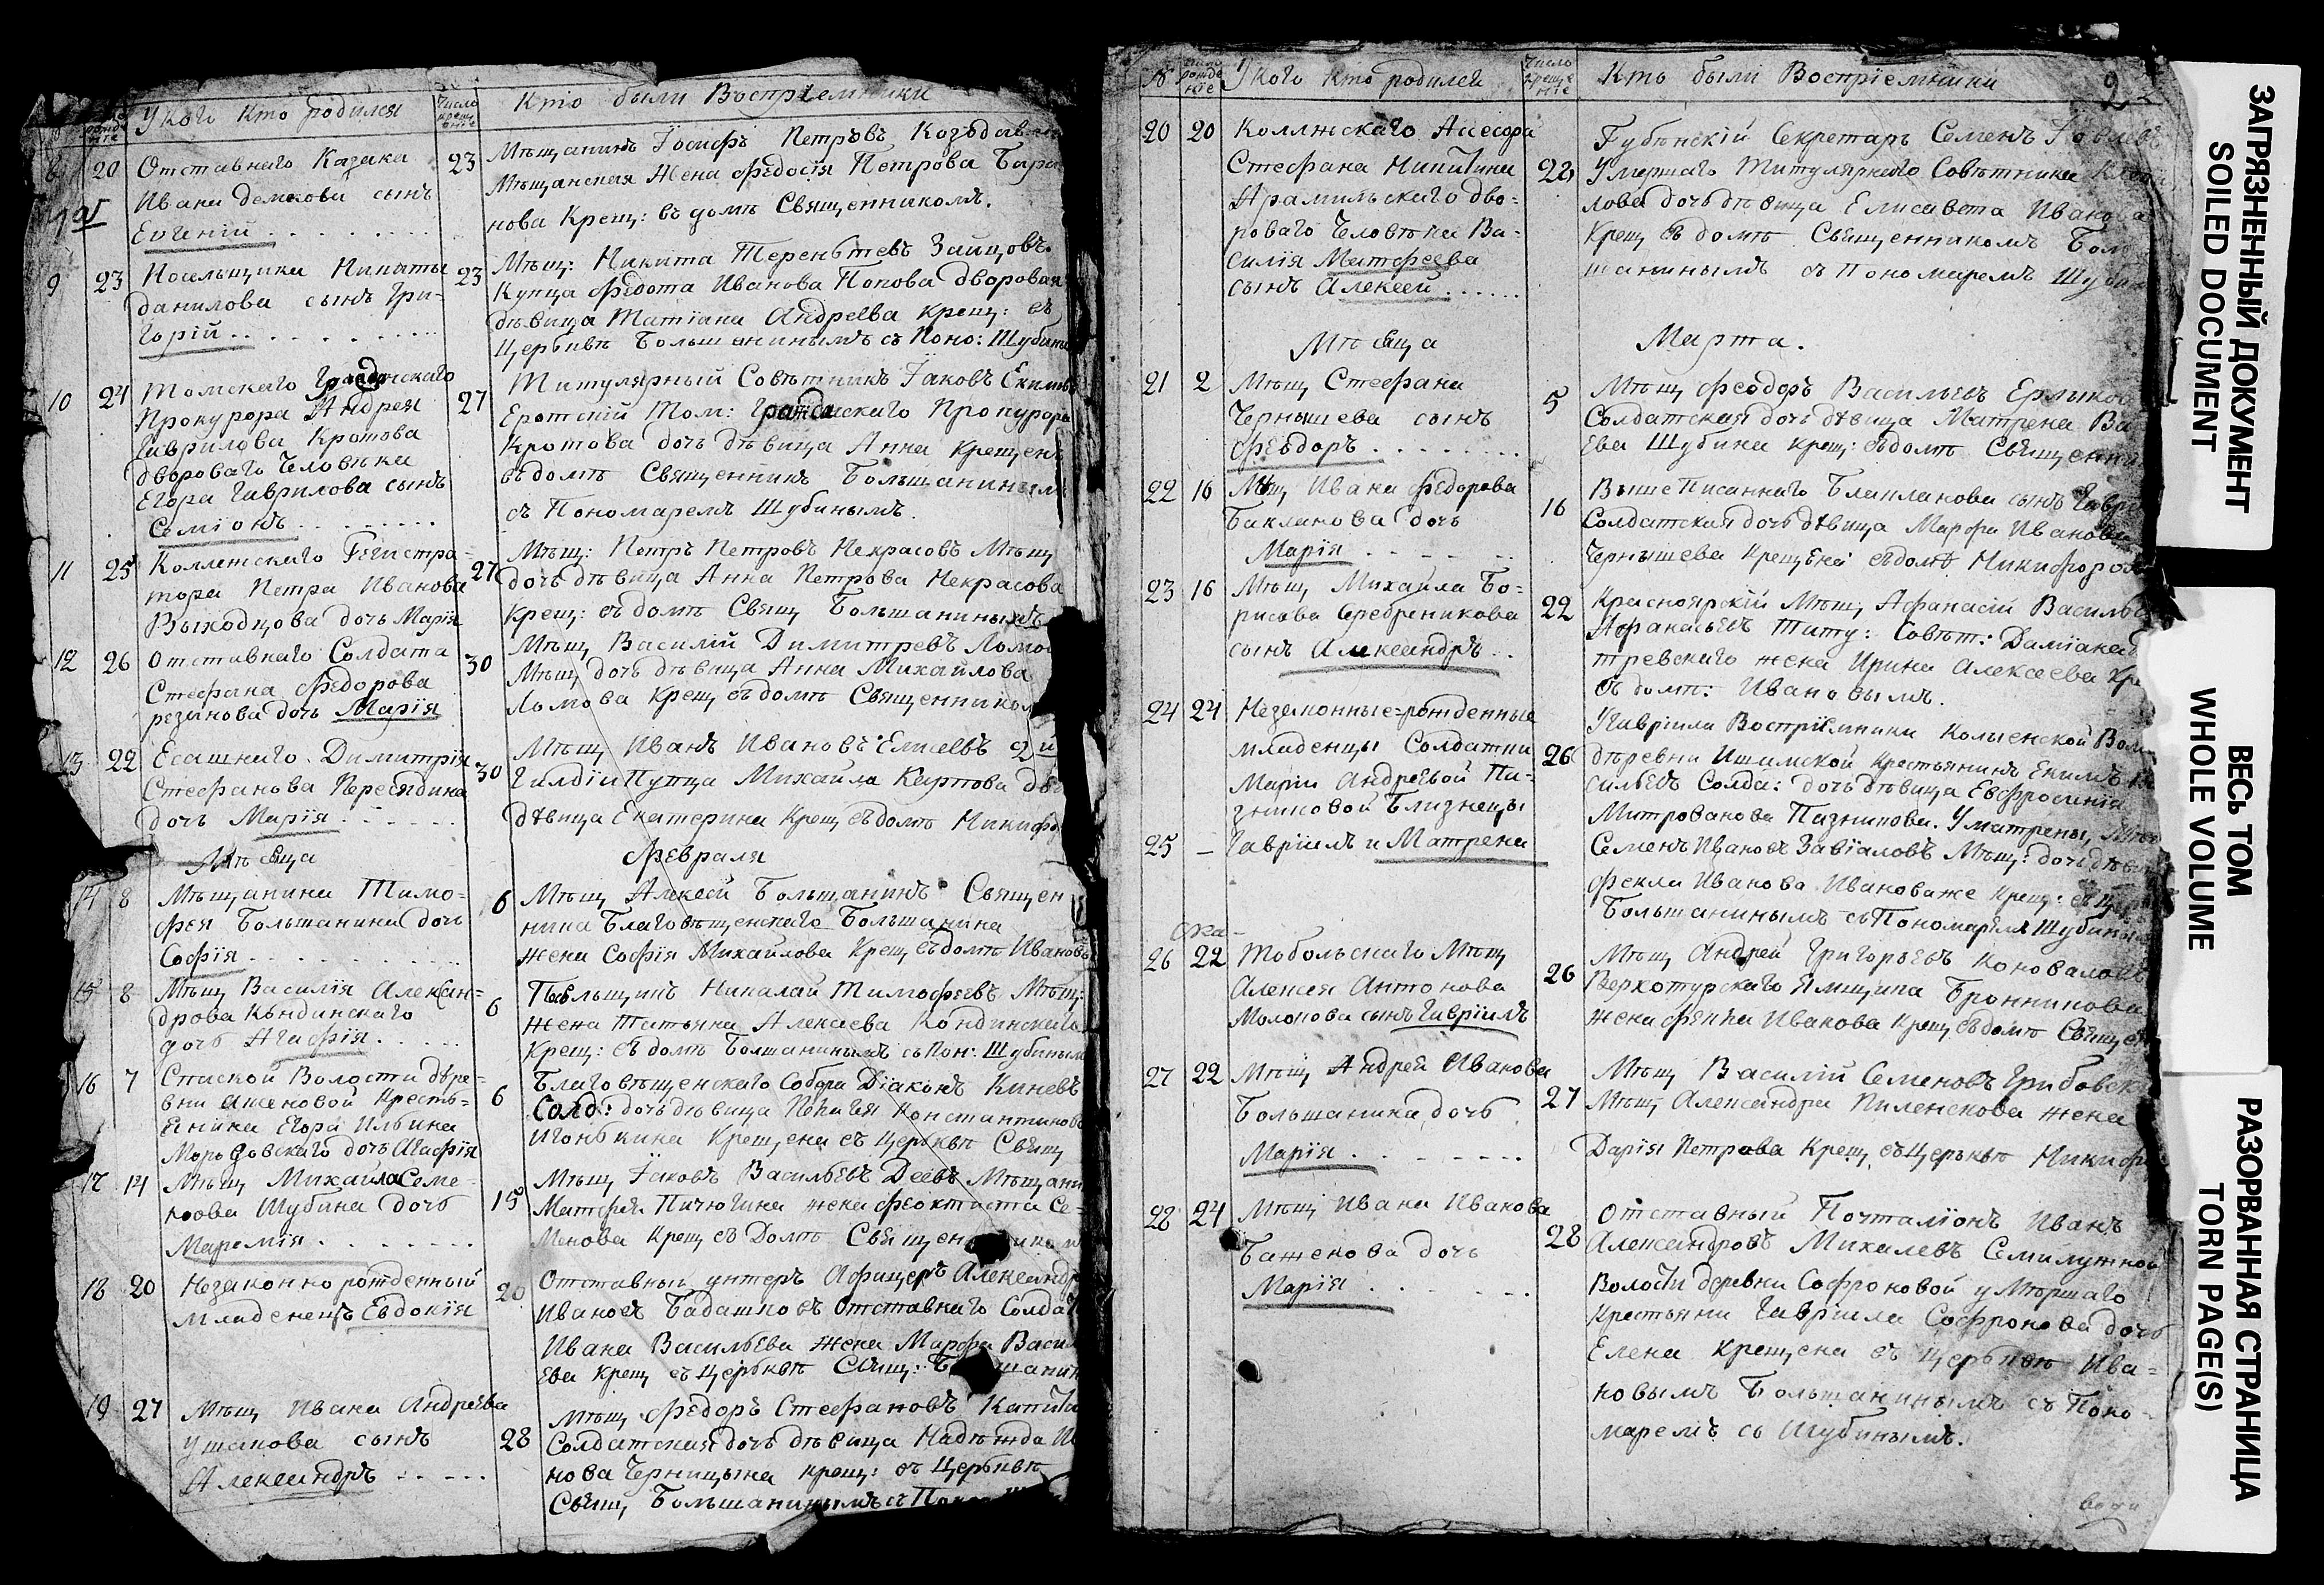 У Кого Кто родился
Число крещенiе
Кто были Воспрiемники
8 20 Отставнаго Казака
Ивана Демкова сынъ
Евгенiй
23 Мѣщанинъ Iосифъ Петровъ
Мѣщанская Жена Федосiя Петрова
нова Крещ: въ домѣ Священникомъ.
9 23 Посельщика Никиты
Данилова сынъ Гри-
горiй
23 Мѣщ: Никита Терентьевъ Зайцовъ
Купца Федота Иванова Попова дворовая
дѣвица Татiана Андреева крещ: въ
Церьквѣ Большанинымъ съ Поно:
10 24 Томскаго Гражданскаго
Прокурора Андрея
Гаврилова Кротова
двороваго Человѣка
Егора Гаврилова сынъ
Семiонъ
27 Титулярный Совѣтникъ Iаковъ
Еротскiй Том: Гражданскаго Прокурора
Кротова дочь дѣвица Анна Крещенъ
въ домѣ Священникъ Большанинымъ
съ Пономаремъ Шубинымъ.
11 25 Коллежскаго Регистра-
тора Петра Иванова
Выходцова дочь Марiя
27 Мѣщ: Петръ Петровъ Некрасовъ Мѣщ
дочь дѣвица Анна Петрова Некрасова
Крещ: въ домѣ Свящ Большанинымъ
12 26 Отставнаго Солдата
Стефана Федорова
резанова дочь Марiя
30 Мѣщ Василiй Димитревъ
Мѣщ дочь дѣвица Анна Михайлова
Ломова Крещ въ домѣ
13 22 Есашнаго Димитрiя
Стефанова Пересядина
дочь Марiя
30 Мѣщ Иванъ Ивановъ Елисеевъ
Гилдiи Купца Михайла Карпова
дѣвица Екатерина Крещ въ домѣ
Мѣсяца Февраля
14 8 Мѣщанина Тимо-
фея Большанина дочь
Софiя
6 Мѣщ Алексей Большанинъ Священ
ника Благовѣщенскаго Большанина
жена Софiя Михайлова Крещ въ домѣ
15 8 Мѣщ Василiя Алексан-
дрова Кондинскаго
дочь Агафiя
6 Посельщикъ Николай Тимофеевъ Мѣщ:
Жена Татьяна Алексаева Кондинскаго
Крещ: въ домѣ Болшанинымъ съ Пон: Шубиным
16 7 Спаской Волости дѣре-
вни Аженовой Кресть-
янина Егора Ильина
Моровскаго дочь Агафiя
6 Благовѣщенскаго Собора Дiаконъ Киневъ
Солд: дочь дѣвица Пелагея Константинова
Игонькина Крещена въ Церьквѣ Свящ
17 14 Мѣщ Михайла Семе-
нова Шубина дочь
Маремiя
15 Мѣщ Iаковъ Васильевъ Деевъ
Матфея Пичугина жена Феоктиста Се-
менова Крещ въ Домѣ
18 20 Незаконно рожденный
Младенецъ Евдокiя
20 Отставный унтеръ Афицеръ
Ивановъ Бадашковъ Отставнаго
Ивана Васильева жена Марфа
ева Крещ въ Церьквѣ Свящ:
19 27 Мѣщ Ивана Андреева
Ушакова сынъ
Александръ
28 Мѣщ Федоръ Стефановъ
Солдатская дочь дѣвица Надѣжда
нова Черницына крещ: въ Церьквѣ
Свящ Большанинымъ съ
№ Число рожденiе У кого кто родилса Число крещенiе Кто были Воспрiемники
2
20 20 Коллжскаго Асесора
Стефана Никитина
Арамильскаго дво-
роваго Человѣка Ва-
силiя Матфеева
сынъ Алексей
22 Губѣнскiй Секретарь Семенъ
Умершаго Титулярнаго Совѣтника
лова дочь дѣвица Елисавета Иванова
Крещ въ домѣ Священникомъ
шанинымъ съ Пономаремъ
Мѣсяца Марта.
21 2 Мѣщ Стефана
Чернышева сынъ
Феодоръ
5 Мѣщ Феодоръ Васильевъ
Солдатская дочь дѣвица Матрена
ева Шубина крещ: въ домѣ
22 16 Мѣщ Ивана Федорова
Бакланова дочь
Марiя
16 Выше Писаннаго Бакланова сынъ
Солдатская дочь дѣвица Марфа Иванова
Чернышева Крещена въ домѣ
23 16 Мѣщ Михайла Бо-
рисова Серебреникова
сынъ Александръ
22 Красноярскiй Мѣщ Афанасiй
Афанасьевъ Титу: Совѣт:
тревскаго жена Ирина Алексеева
въ домѣ: Ивановымъ.
24 24 Незаконные рожденные
младенцы Солдатки
Марiи Андреевой Па-
зниковой Близнецы
25 – Гаврiилъ и Матрена
26 У Гаврiила Воспрiемники
дѣревни Ишимской Крестьянинъ Екимъ
сильевъ Солда: дочь дѣвица Евфросинiя
Митрованова Пазникова. У Матрены,
Семенъ Ивановъ Завiаловъ Мѣщ: дочь
фекла Иванова Ивановаже Крещ:
Большанинымъ съ Пономаремъ
26 22 Тобольскаго Мѣщ
Алексея Антонова
Молокова сынъ Гаврiилъ
26 Мѣщ Андрей Григорьевъ
Верхотурскаго Ямщика Бронникова
жена Иванова Крещ въ домѣ
27 22 Мѣщ Андрей Иванова
Большанина дочь
Марiя
27 Мѣщ Василiй Семеновъ
Мѣщ Александра Пиленскова жена
Дарiя Петрова Крещ въ Церьквѣ
28 24 Мѣщ Ивана Иванова
Баженова дочь
Марiя
28 Отставный Почталiонъ Иванъ
Александровъ Михалевъ Семилужной
Волости деревни Софроновой умѣршаго
Крестьяни Гаврiила Софронова дочь
Елена Крещена въ Церьквѣ Ива-
новымъ Большанинымъ съ Поно-
маремъ со Шубинымъ.
ЗАГРЯЗНЕННЫЙ ДОКУМЕНТ
SOILED DOCUMENT
ВЕСЬ ТОМ
WHOLE VOLUME
РАЗОРВАННАЯ СТРАНИЦА
TORN PAGE(S)